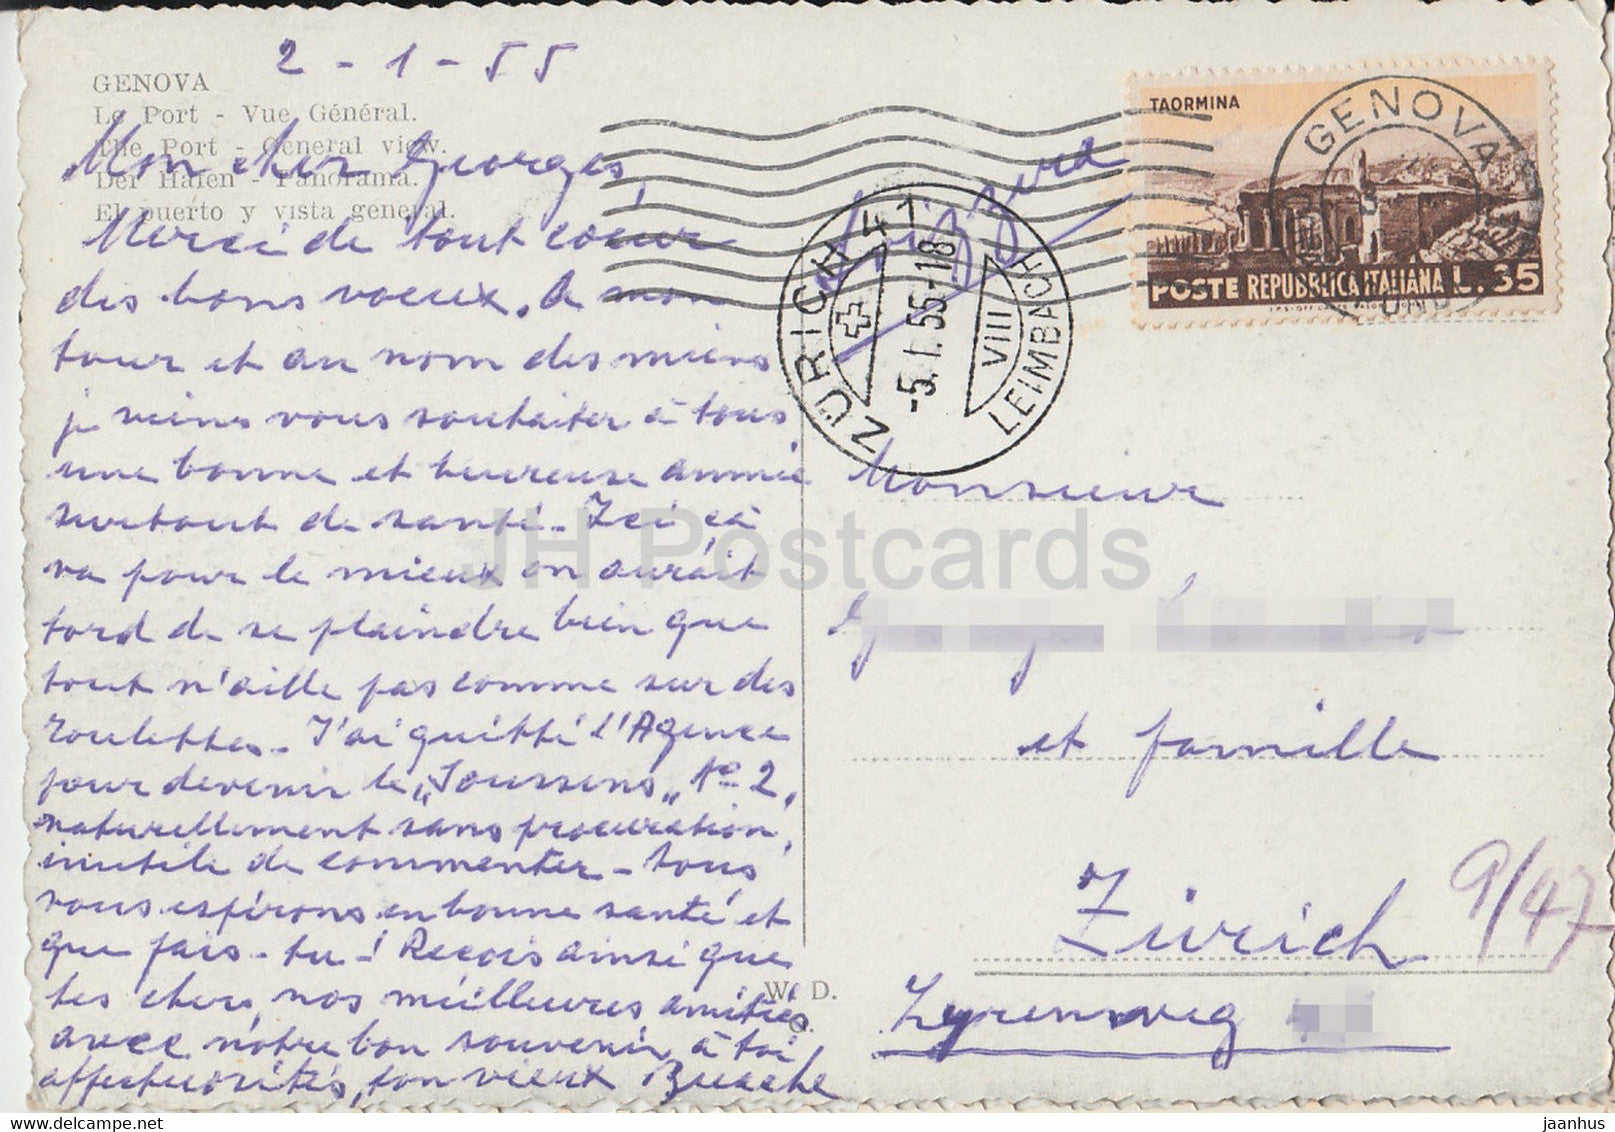 2 - 1 - 55
GENOVA
Le Port - Vue Général.
The Port - General view.
Der Hafen - Panorama.
El puerto y vista general.
Mon cher Georges,
Merci de tout coeur
des bons voeux. A mon
tour et au nom des miens
je viens vous souhaiter à tous
une bonne et heureuse année
surtout de santé - Ici çà
va pour le mieux on aurait
tord de se plaindre bien que
tout n'aille pas comme sur des
roulettes - J'ai quitté l'Agence
pour devenir le „Toussens„ No 2,
naturellement sans procuration,
inutile de commenter - Tous,
vous espérons en bonne santé et
que fais-tu -! Reçois ainsi que
tes chers, nos meilleures amitiés
avec notre bon souvenir, à toi
affectuosités, ton vieux
W. D.
TAORMINA
POSTE REPUBBLICA ITALIANA L. 35
GENOVA
Svizzera
ZÜRICH 41
-5.I.55-18
VIII
LEIMBACH
Monsieur
et famille
Zürich
9/47
JH Postcards
jaanhus
www.delcampe.net